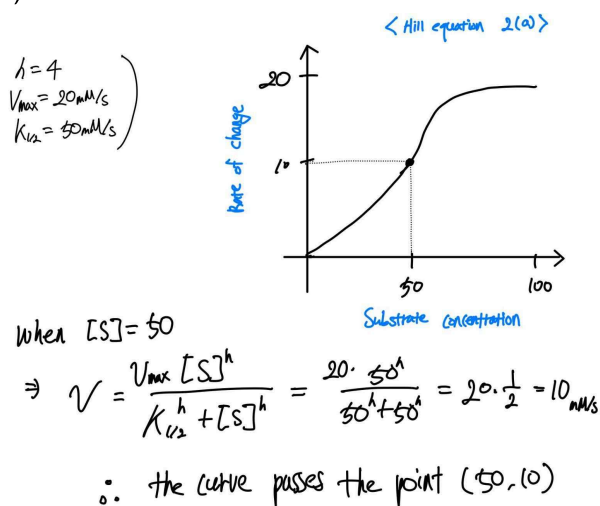 < Hill equation 2(a) >
h = 4
Vmax = 20mM/s
K1/2 = 50mM/s
20
10
Rate of change
50
100
Substrate concentration
when [S] = 50
⇒ V = Vmax [S]^h / (K1/2^h + [S]^h) = 20 · 50^h / (50^h + 50^h) = 20 · 1/2 = 10 mM/s
∴ the curve passes the point (50, 10)